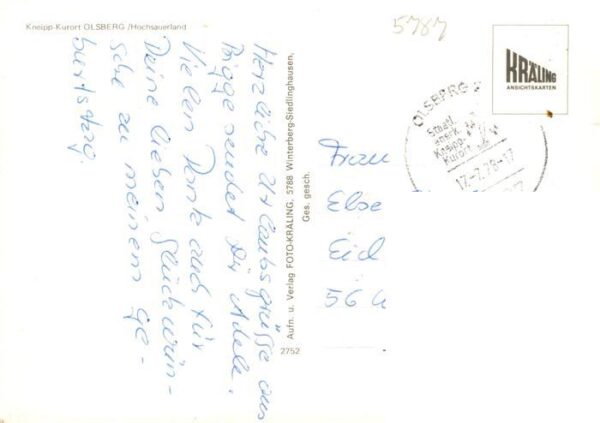 Kneipp-Kurort OLSBERG /Hochsauerland
Herzliche Urlaubsgrüsse aus
Bigge sendet Dir Adele.
Vielen Dank auch für
Deine lieben Glückwün-
sche zu meinem Ge-
burtstag.
2752
Aufn. u. Verlag FOTO-KRÄLING, 5788 Winterberg-Siedlinghausen,
Ges. gesch.
5787
KRÄLING
ANSICHTSKARTEN
OLSBERG
Staatl.
anerk.
Kneipp-
Kurort
17.-7.78-17
Frau
Else
Eid
56